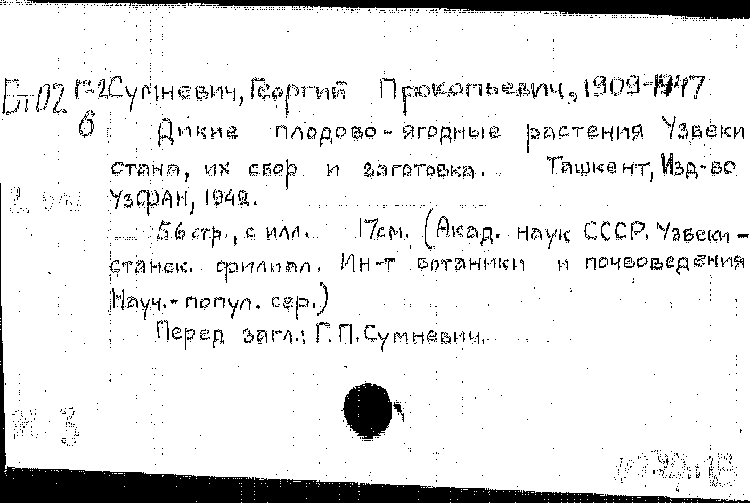 Сумневич, Георгий Прокопьевич, 1909-1947
Дикие плодово-ягодные растения Узбеки
стана, их сбор и заготовка. Ташкент, Изд-во
УзФАН, 1942.
56 стр., с илл. 17см. (Акад. наук СССР. Узбеки-
станск. филиал. Ин-т ботаники и почвоведения
Науч.-попул. сер.)
Перед загл.: Г.П.Сумневич.